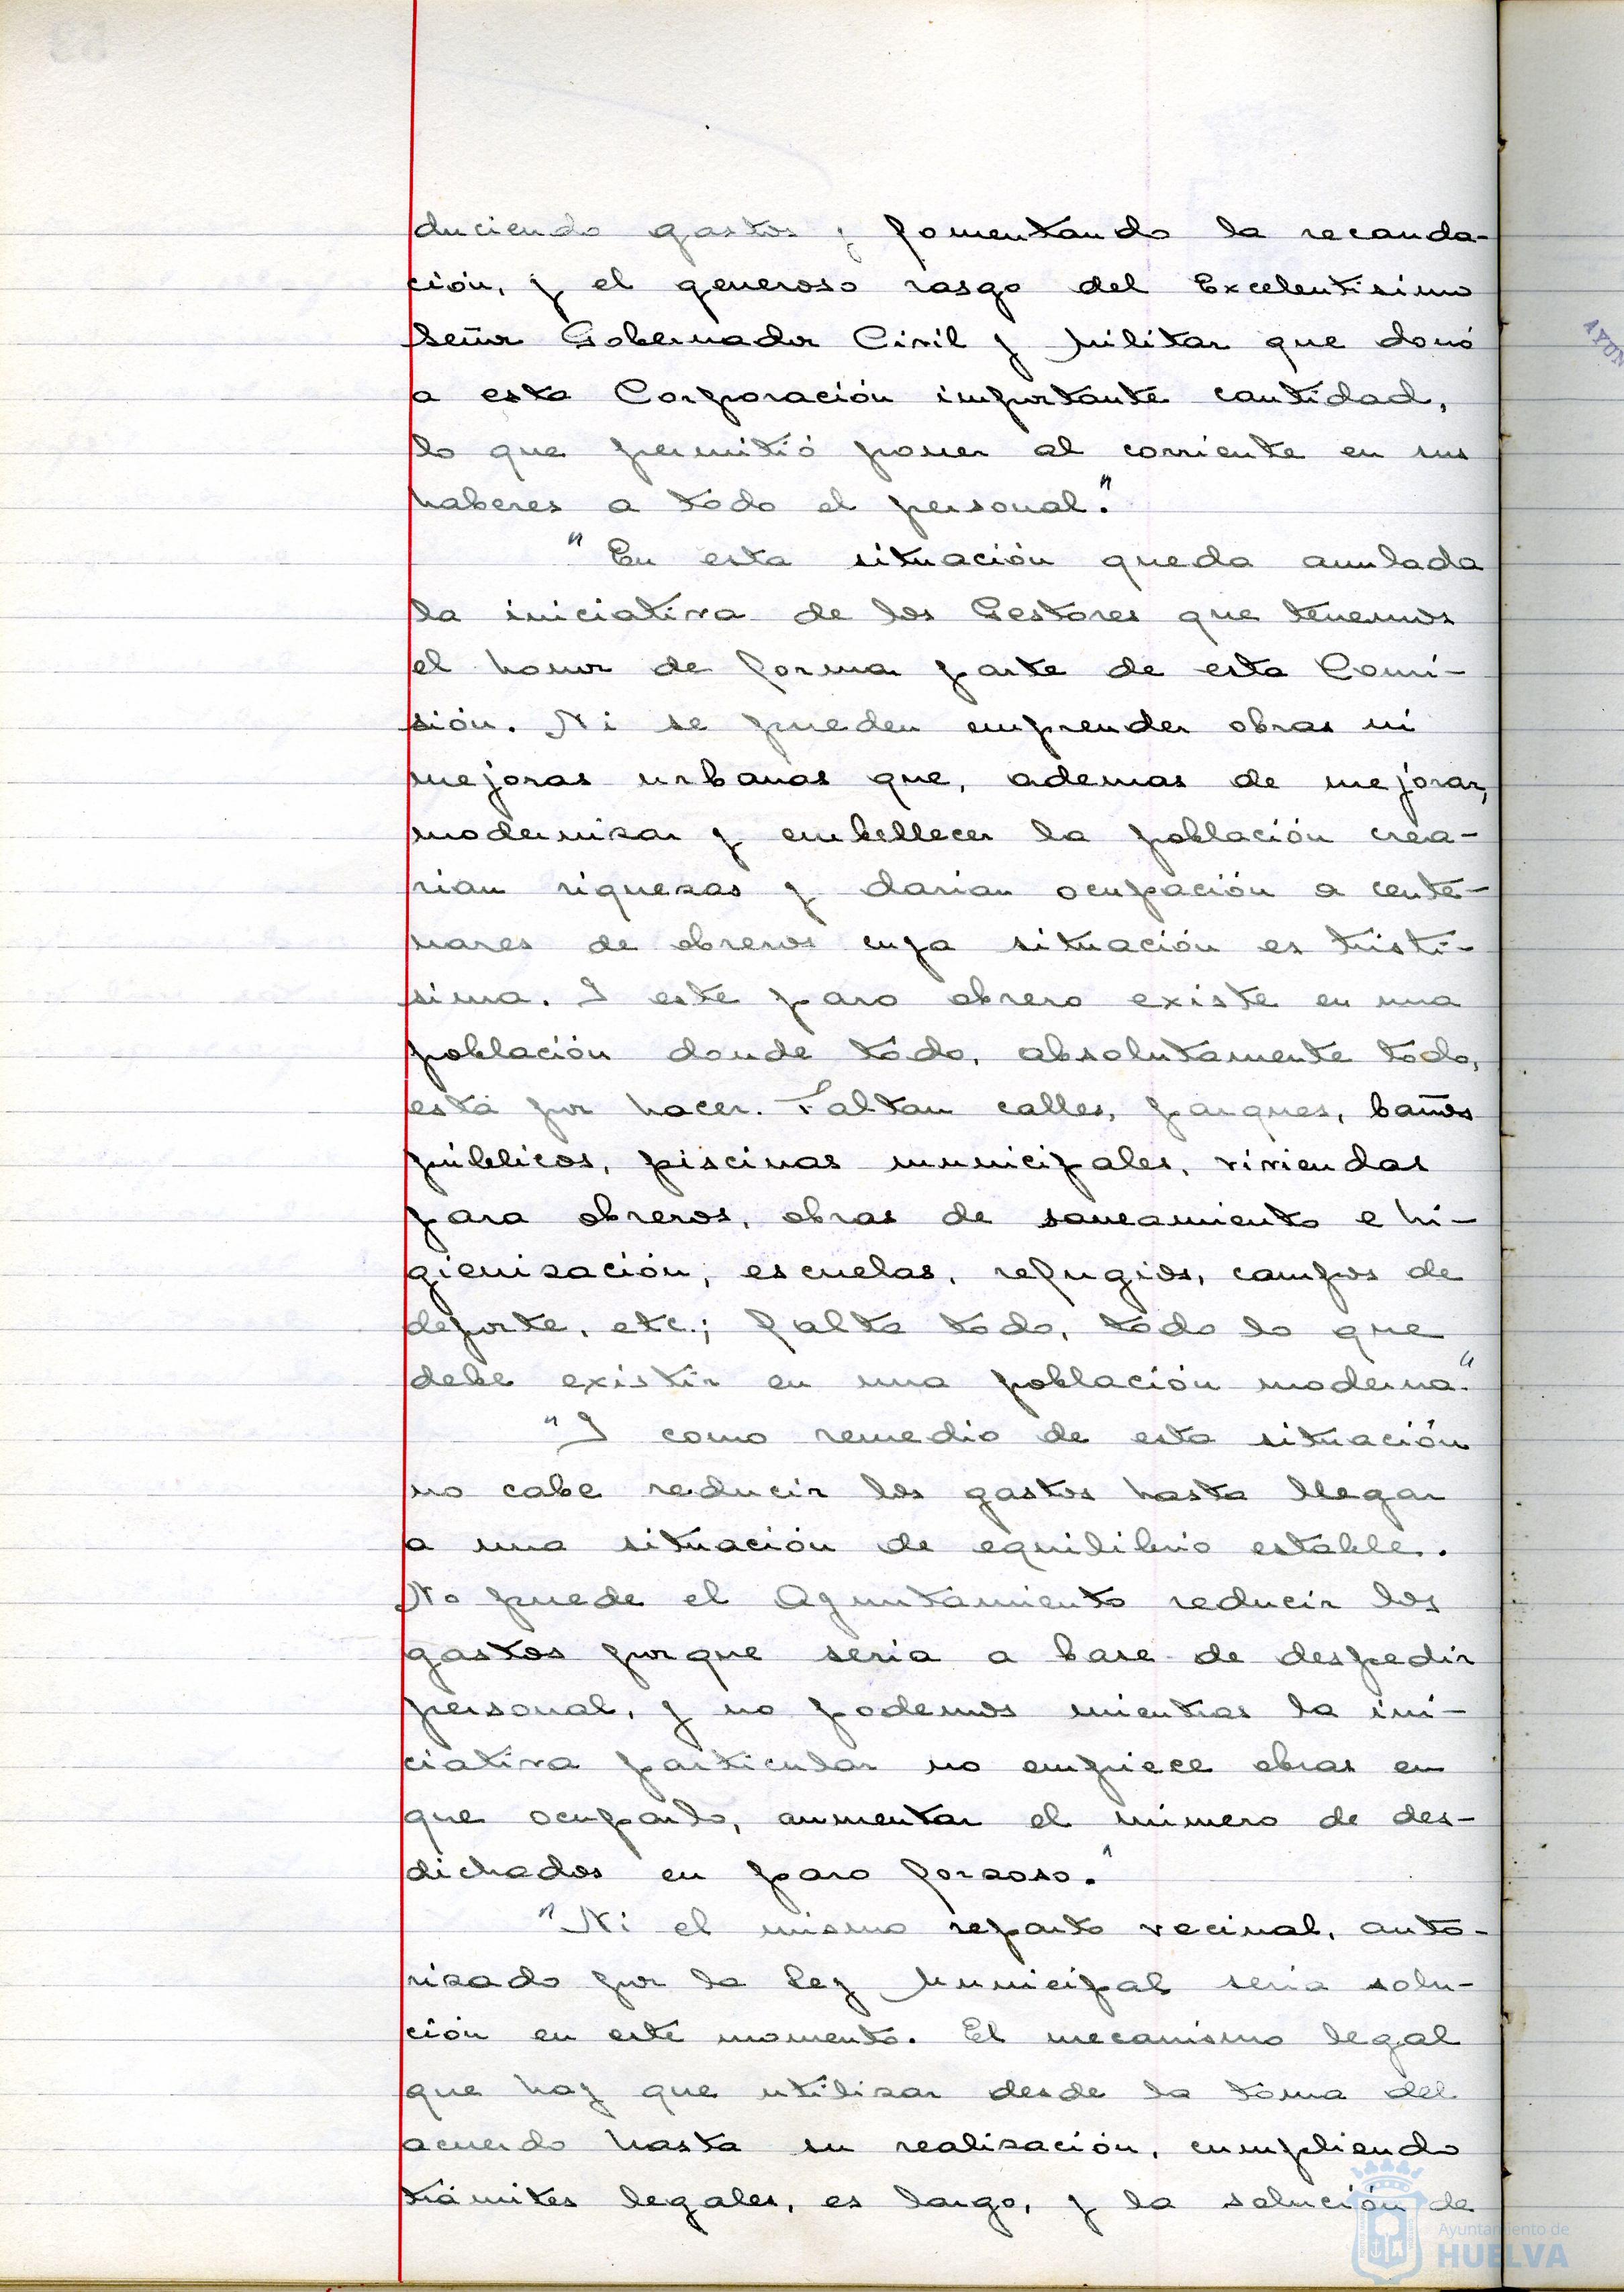 duciendo gastos y fomentando la recauda-
ción, y el generoso rasgo del Excelentisimo
Señor Gobernador Civil y Militar que donó
a esta Corporación importante cantidad,
lo que permitió poner al corriente en sus
haberes a todo el personal."
"En esta situación queda anulada
la iniciativa de los Gestores que tenemos
el honor de formar parte de esta Comi-
sión. Ni se pueden emprender obras ni
mejoras urbanas que, ademas de mejorar,
modernizar y embellecer la población crea-
rian riquezas y darian ocupación a cente-
nares de obreros cuya situación es tristi-
sima. Y este paro obrero existe en una
población donde todo, absolutamente todo,
está por hacer. Faltan calles, parques, baños
públicos, piscinas municipales, viviendas
para obreros, obras de saneamiento e hi-
gienización, escuelas, refugios, campos de
deporte, etc.; falta todo, todo lo que
debe existir en una población moderna."
"Y como remedio de esta situación
no cabe reducir los gastos hasta llegar
a una situación de equilibrio estable.
No puede el Ayuntamiento reducir los
gastos porque seria a base de despedir
personal, y no podemos mientras la ini-
ciativa particular no empiece obras en
que ocuparlo, aumentar el número de des-
dichados en paro forzoso."
"Ni el mismo reparto vecinal, auto-
rizado por la Ley Municipal seria solu-
ción en este momento. El mecanismo legal
que hay que utilizar desde la toma del
acuerdo hasta su realización, cumpliendo
trámites legales, es largo, y la solución de
Ayuntamiento de
HUELVA